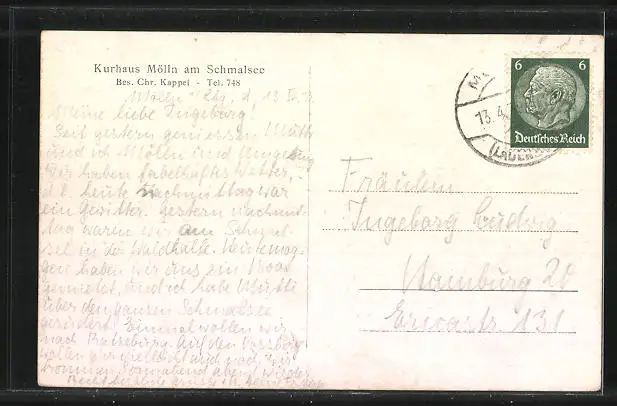 Kurhaus Mölln am Schmalsee
Bes. Chr. Kappel - Tel. 748
Mölln Lbg. d. 13
Meine liebe Ingeborg!
Seit gestern geniessen Mutti
und ich Mölln und Umgebung
Wir haben fabelhaftes Wetter,
d.h. heute Nachmittag war
ein Gewitter. Gestern nachmit-
tag waren wir am Schmal-
see in der Waldhalle. Heute mor-
gen haben wir uns ein Boot
gemietet, und ich habe Mutti
über den ganzen Schmalsee
gerudert. Einmal wollen wir
nach Ratzeburg. Auf den
wollen wir vielleicht auch noch. Wir
kommen Sonnabend abend wieder
6 6
Deutsches Reich
13.4.
(LAUENB
Fräulein
Ingeborg Ludwig
Hamburg 20
131